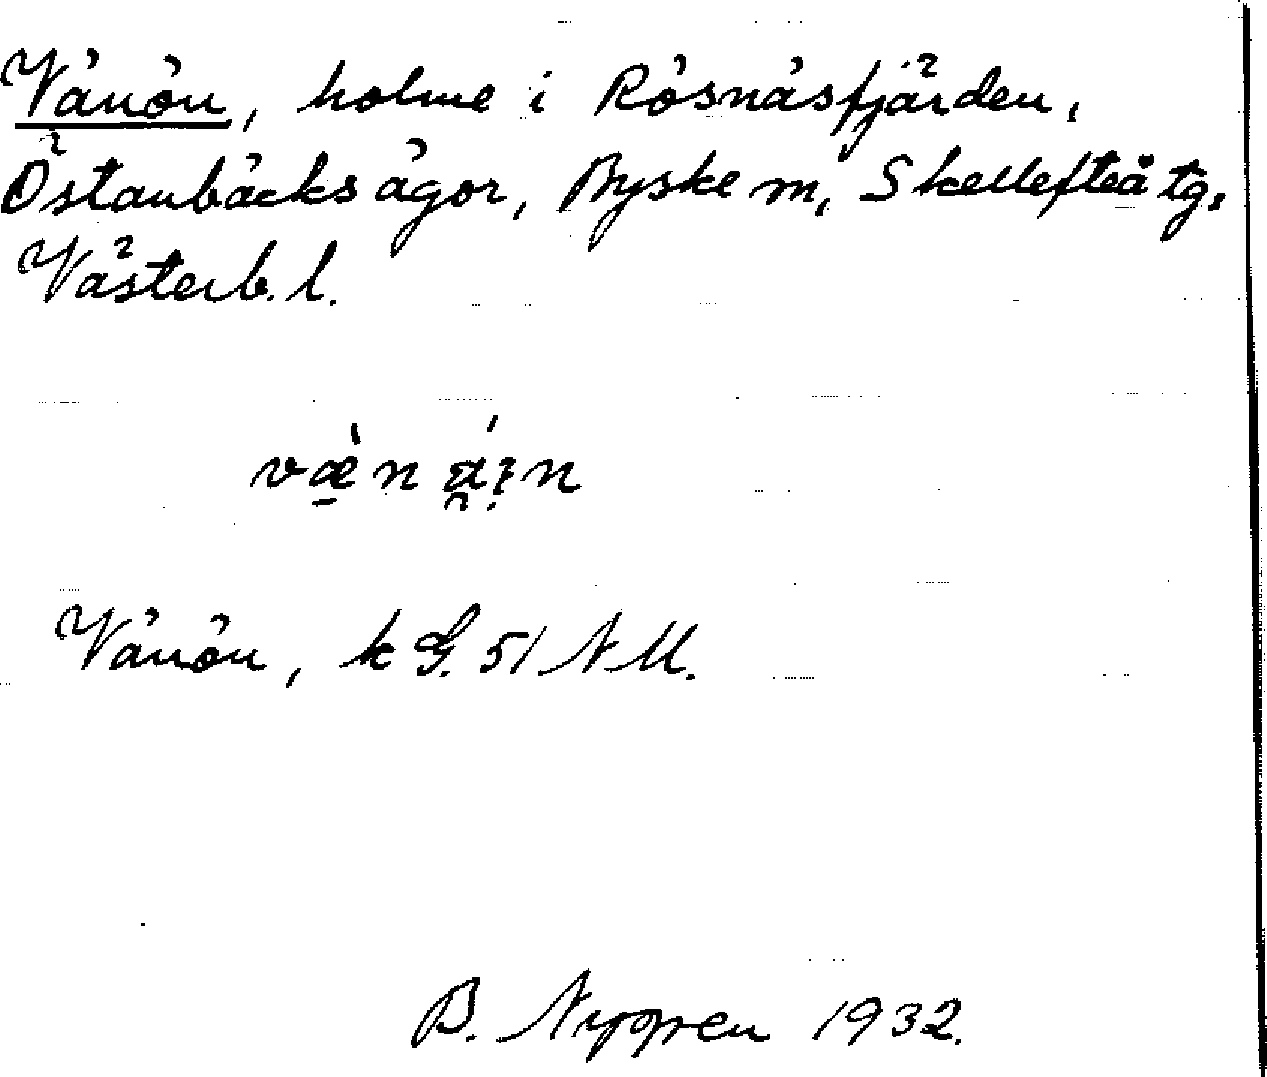 Vänön, holme i Rösnäsfjärden,
Östanbäcks ägor, Byske m, Skellefteå tg,
Västerb. l.
Vänön, k G. 51 N M.
B. Nygren 1932.